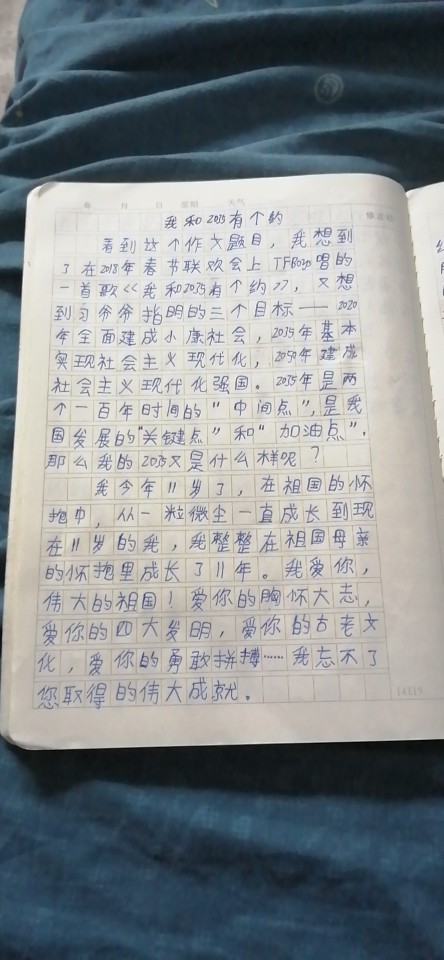 年 月 日 星期 天气
我和2035有个约
看到这个作文题目，我想到
了在2018年春节联欢会上TFBoys唱的
一首歌<<我和2035有个约>>，又想
到习爷爷指明的三个目标——2020
年全面建成小康社会，2035年基本
实现社会主义现代化，2050年建成
社会主义现代化强国。2035年是两
个一百年时间的“中间点”，是我
国发展的“关键点”和“加油点”，
那么我的2035又是什么样呢？
我今年11岁了，在祖国的怀
抱中，从一粒微尘一直成长到现
在11岁的我，我整整在祖国母亲
的怀抱里成长了11年。我爱你，
伟大的祖国！爱你的胸怀大志，
爱你的四大发明，爱你的古老文
化，爱你的勇敢拼搏……我忘不了
您取得的伟大成就。